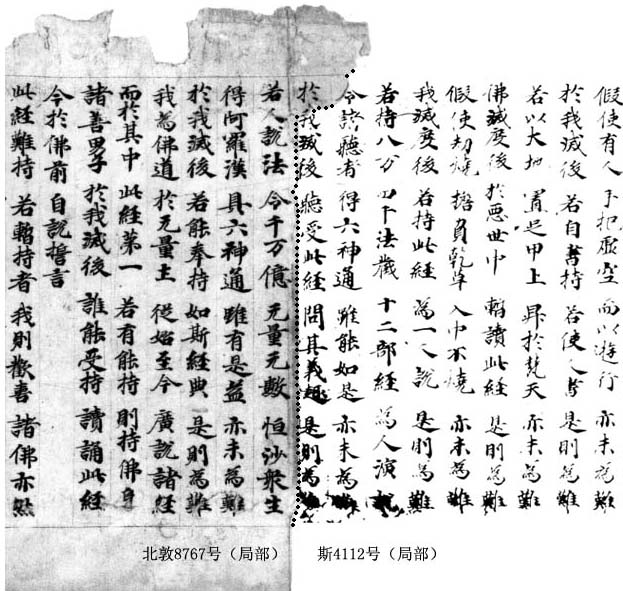 假使有人 手把虛空 而以遊行 亦未為難
於我滅後 若自書持 若使人書 是則為難
若以大地 置足甲上 昇於梵天 亦未為難
佛滅度後 於悪世中 暫讀此経 是則為難
假使劫燒 擔負乾草 入中不燒 亦未為難
我滅度後 若持此経 為一人說 是則為難
若持八万 四千法藏 十二部経 為人演說
令諸聽者 得六神通 雖能如是 亦未為難
於我滅後 聽受此経 問其義趣 是則為難
若人說法 令千万億 无量无數 恒沙衆生
得阿羅漢 具六神通 雖有是益 亦未為難
於我滅後 若能奉持 如斯経典 是則為難
我為佛道 於无量土 從始至今 廣說諸経
而於其中 此経第一 若有能持 則持佛身
諸善男子 於我滅後 誰能受持 讀誦此経
今於佛前 自說誓言
此経難持 若暫持者 我則歡喜 諸佛亦然
北敦8767号（局部） 斯4112号（局部）